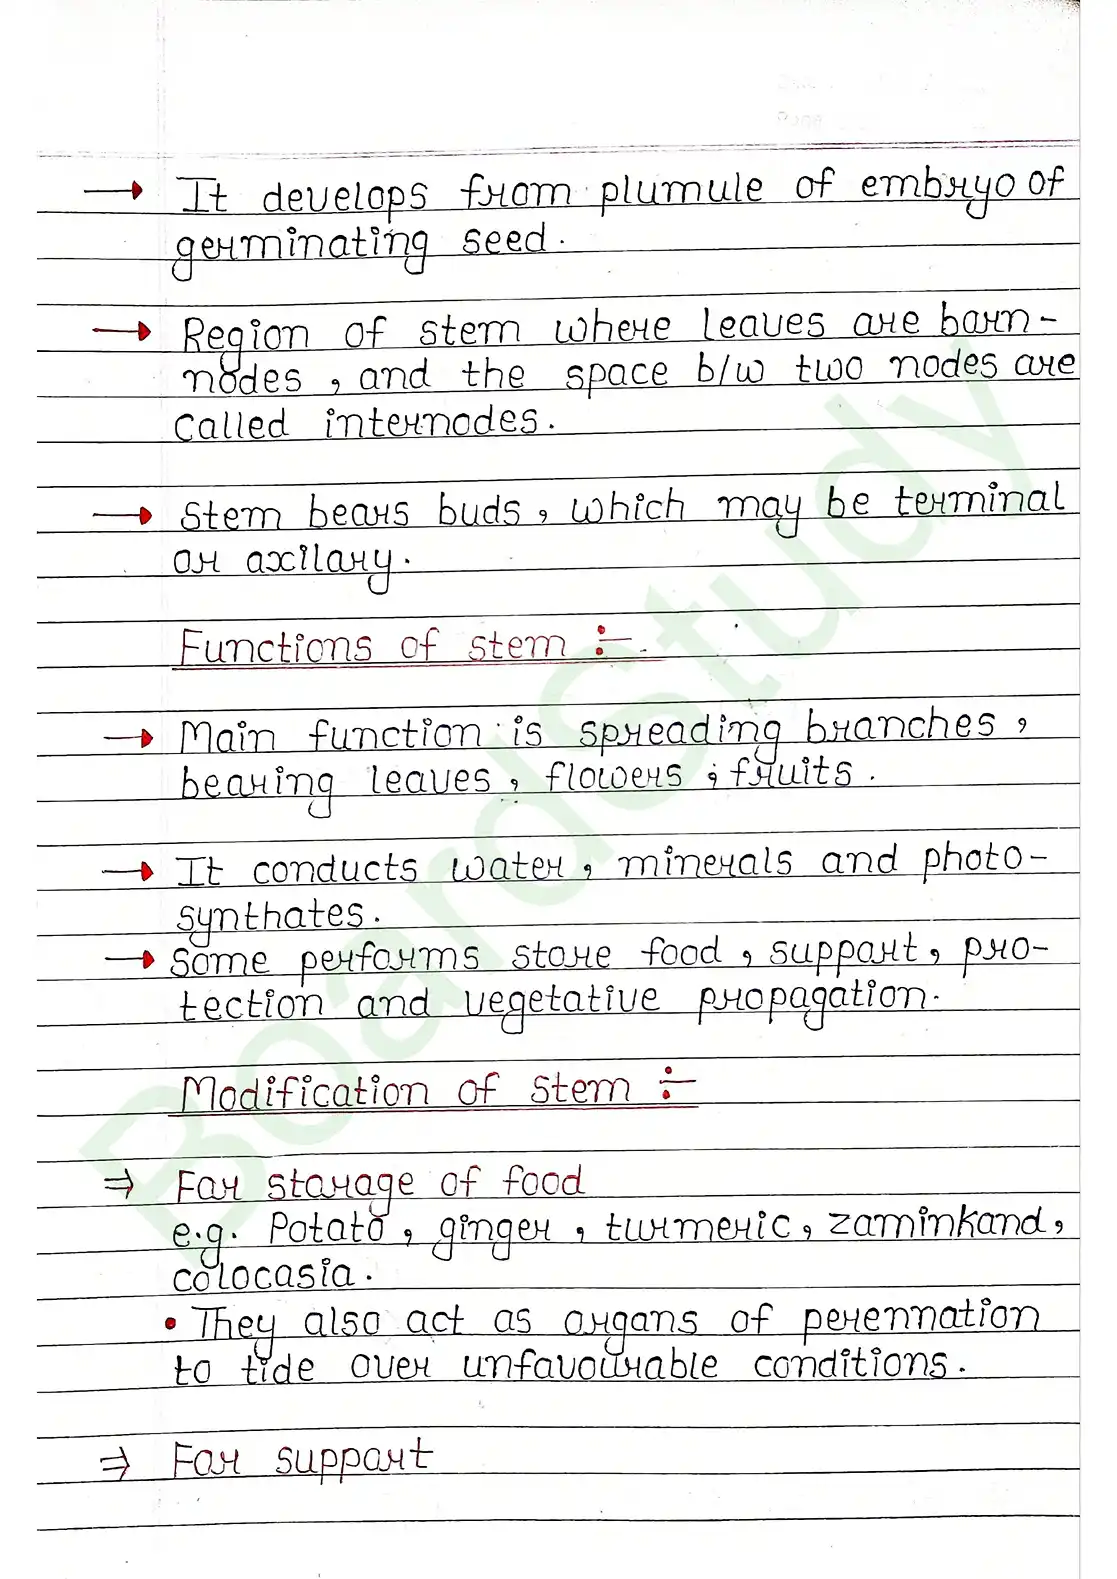 → It develops from plumule of embryo of
germinating seed.
→ Region of stem where leaves are born-
nodes, and the space b/w two nodes are
called internodes.
→ Stem bears buds, which may be terminal
or axilary.
Functions of stem :-
→ Main function is spreading branches,
bearing leaves, flowers & fruits.
→ It conducts water, minerals and photo-
synthates.
→ Some performs store food, support, pro-
tection and vegetative propagation.
Modification of stem :-
⇒ For storage of food
e.g. Potato, ginger, turmeric, zaminkand,
colocasia.
• They also act as organs of perennation
to tide over unfavourable conditions.
⇒ For support
BoardStudy